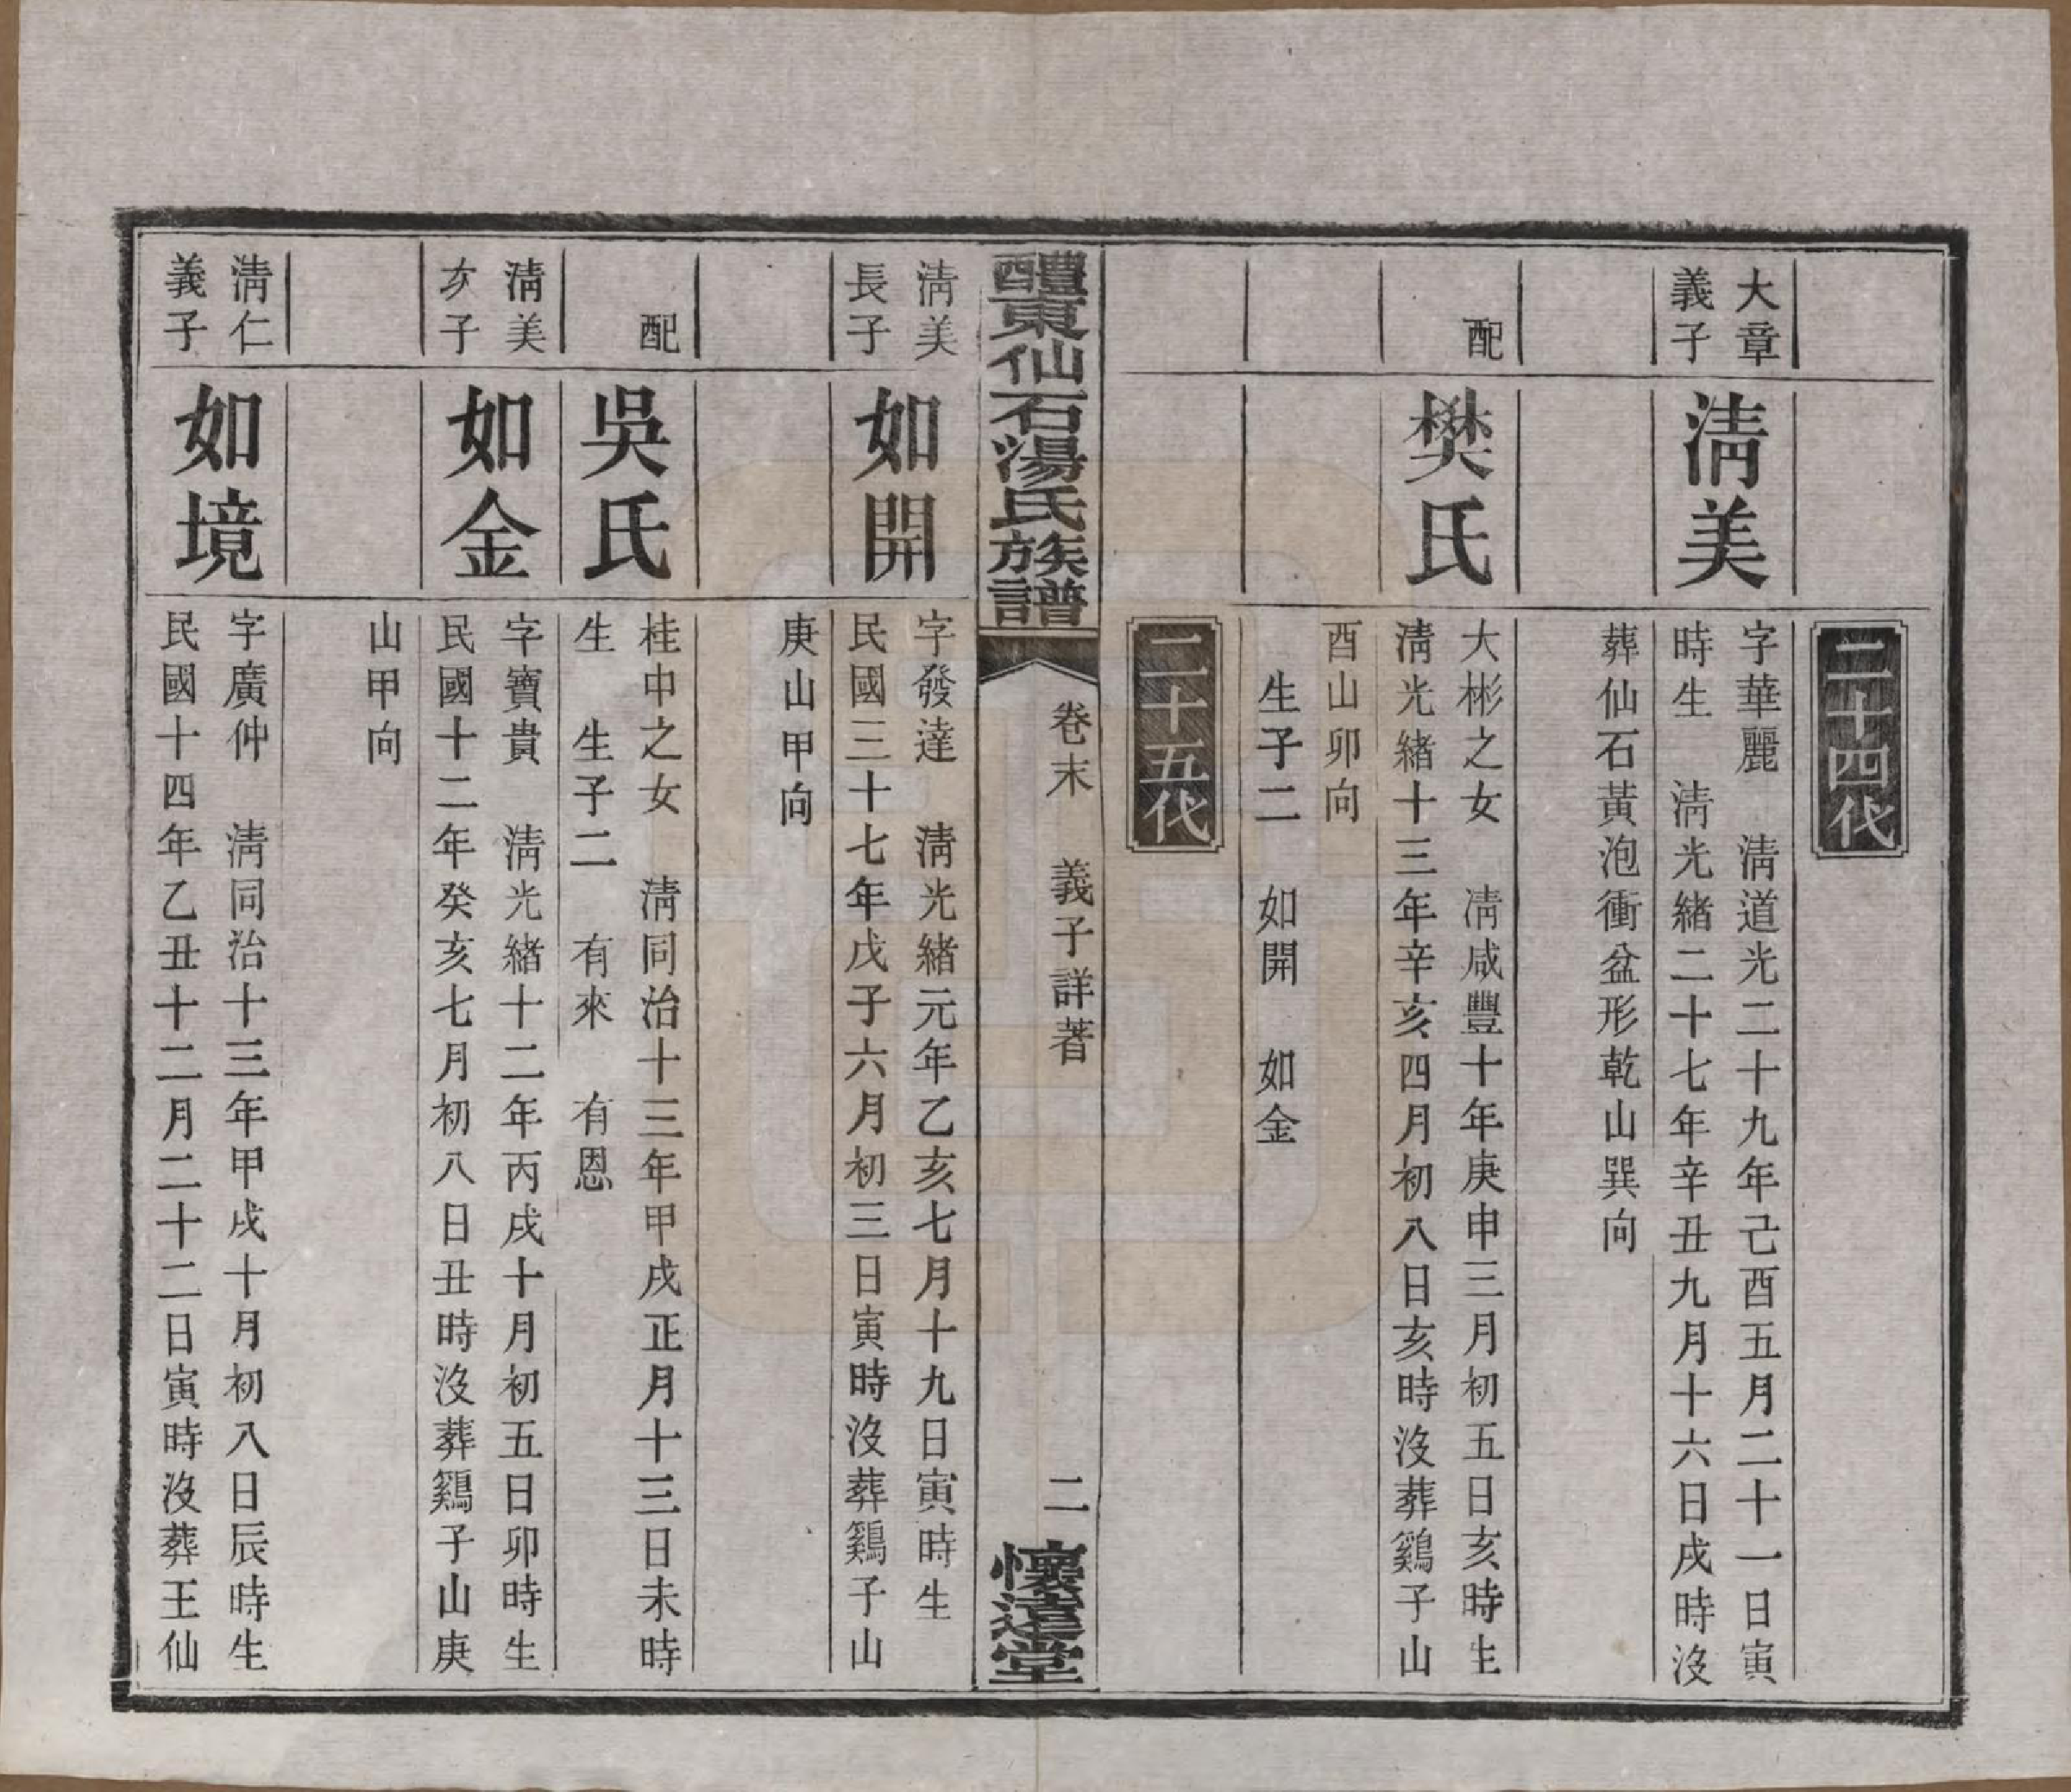 二十四代
大章
義子
淸美
字華麗　淸道光二十九年己酉五月二十一日寅
時生　淸光緖二十七年辛丑九月十六日戌時沒
葬仙石黃泡衝盆形乾山巽向
配
樊氏
大彬之女　淸咸豐十年庚申三月初五日亥時生
淸光緖十三年辛亥四月初八日亥時沒葬鷄子山
酉山卯向
生子二　如開　如金
二十五代
醴東仙石湯氏族譜
卷末　義子詳著
二
懷遠堂
淸美
長子
如開
字發達　淸光緖元年乙亥七月十九日寅時生
民國三十七年戊子六月初三日寅時沒葬鷄子山
庚山甲向
配
吳氏
桂中之女　淸同治十三年甲戌正月十三日未時
生　生子二　有來　有恩
淸美
次子
如金
字寶貴　淸光緖十二年丙戌十月初五日卯時生
民國十二年癸亥七月初八日丑時沒葬鷄子山庚
山甲向
淸仁
義子
如境
字廣仲　淸同治十三年甲戌十月初八日辰時生
民國十四年乙丑十二月二十二日寅時沒葬王仙